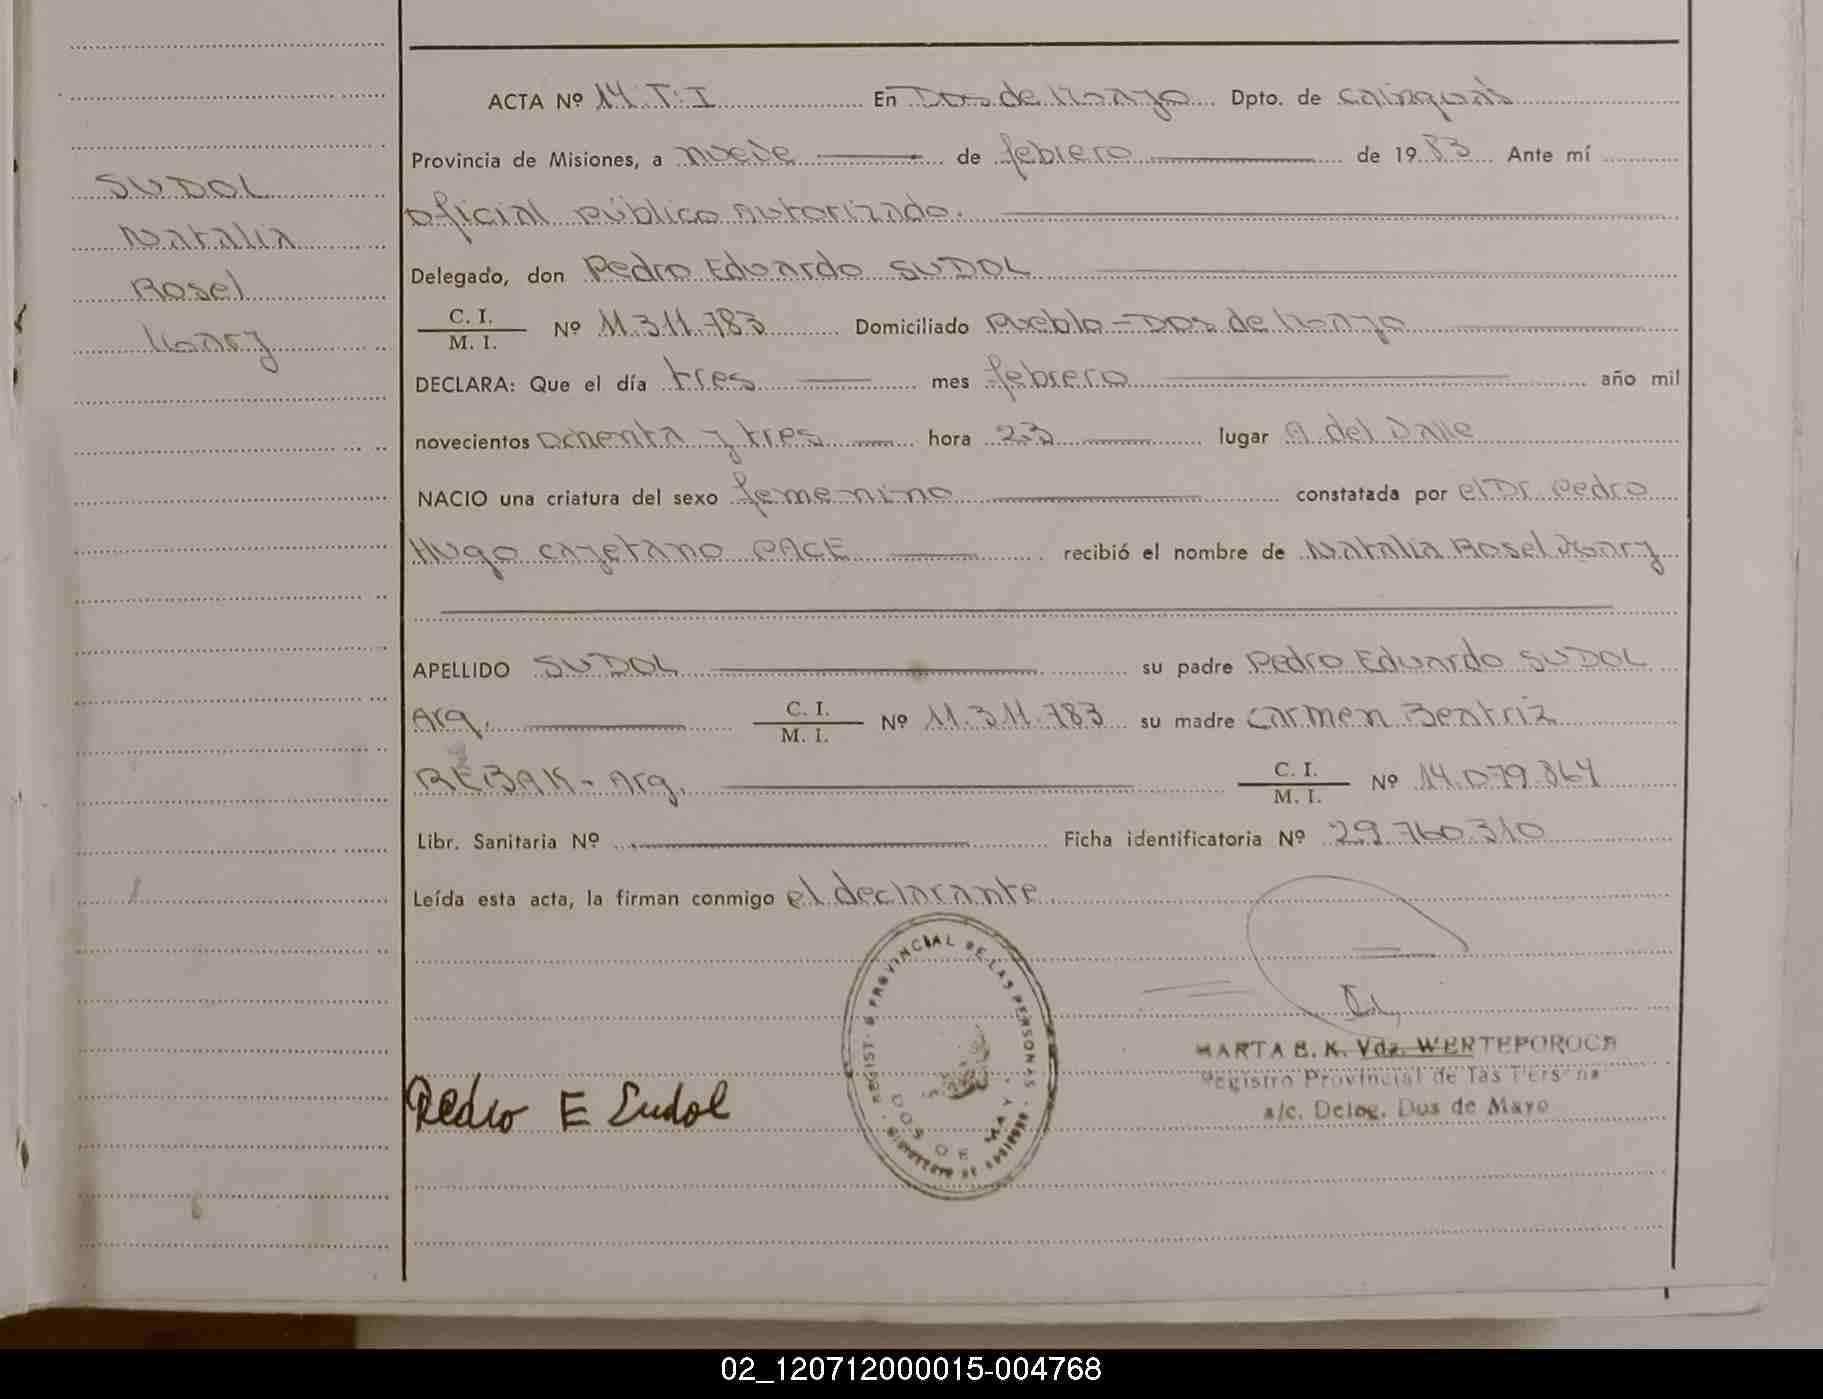 ACTA Nº 14. T: I En Dos de Mayo Dpto. de Cainguás
Provincia de Misiones, a nueve de febrero de 1983 Ante mí
oficial público autorizado.
SUDOL
Natalia
Rosel
Mary
Delegado, don Pedro Eduardo SUDOL
C. I.
M. I. Nº 11.311.783 Domiciliado Pueblo - Dos de Mayo
DECLARA: Que el día tres mes febrero año mil
novecientos ochenta y tres hora 23 lugar A. del Valle
NACIO una criatura del sexo femenino constatada por el Dr. Pedro
Hugo Cayetano PACE recibió el nombre de Natalia Rosel Mary
APELLIDO SUDOL su padre Pedro Eduardo SUDOL
Arg. C. I.
M. I. Nº 11.311.783 su madre Carmen Beatriz
REBAK - Arg. C. I.
M. I. Nº 14.079.364
Libr. Sanitaria Nº Ficha identificatoria Nº 29.760.310
Leída esta acta, la firman conmigo el declarante
REGIST. PROVINCIAL DE LAS PERSONAS
DOS DE MAYO
MINISTERIO DE GOBIERNO
Pedro E Sudol
MARTA B. K. Vda. WERTEPOROCH
Registro Provincial de las Persona
a/c. Deleg. Dos de Mayo
02_120712000015-004768